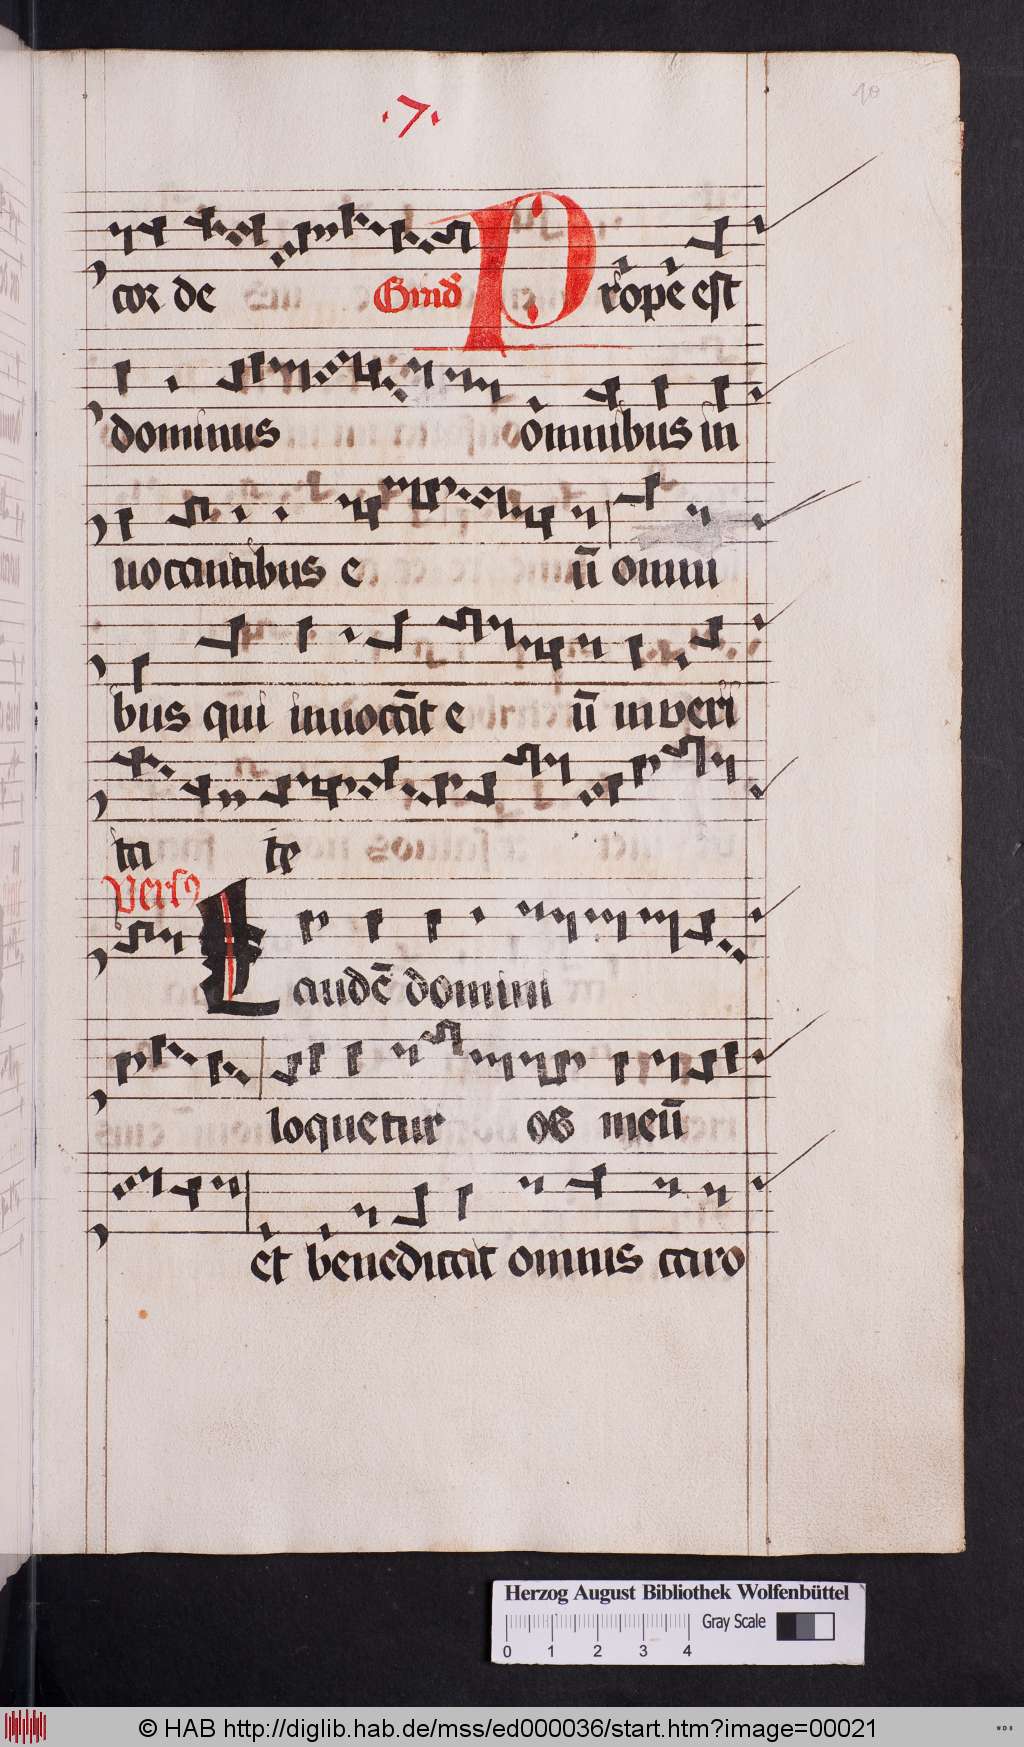 .7.
10
cor de Grad9 Prope est
dominus omnibus in
uocantibus e ū omni
bus qui inuocāt e ū in veri
ta te
Vers9
Laudē domini
loquetur os meū
et benedicat omnis caro
Herzog August Bibliothek Wolfenbüttel
Gray Scale
0 1 2 3 4
© HAB http://diglib.hab.de/mss/ed000036/start.htm?image=00021